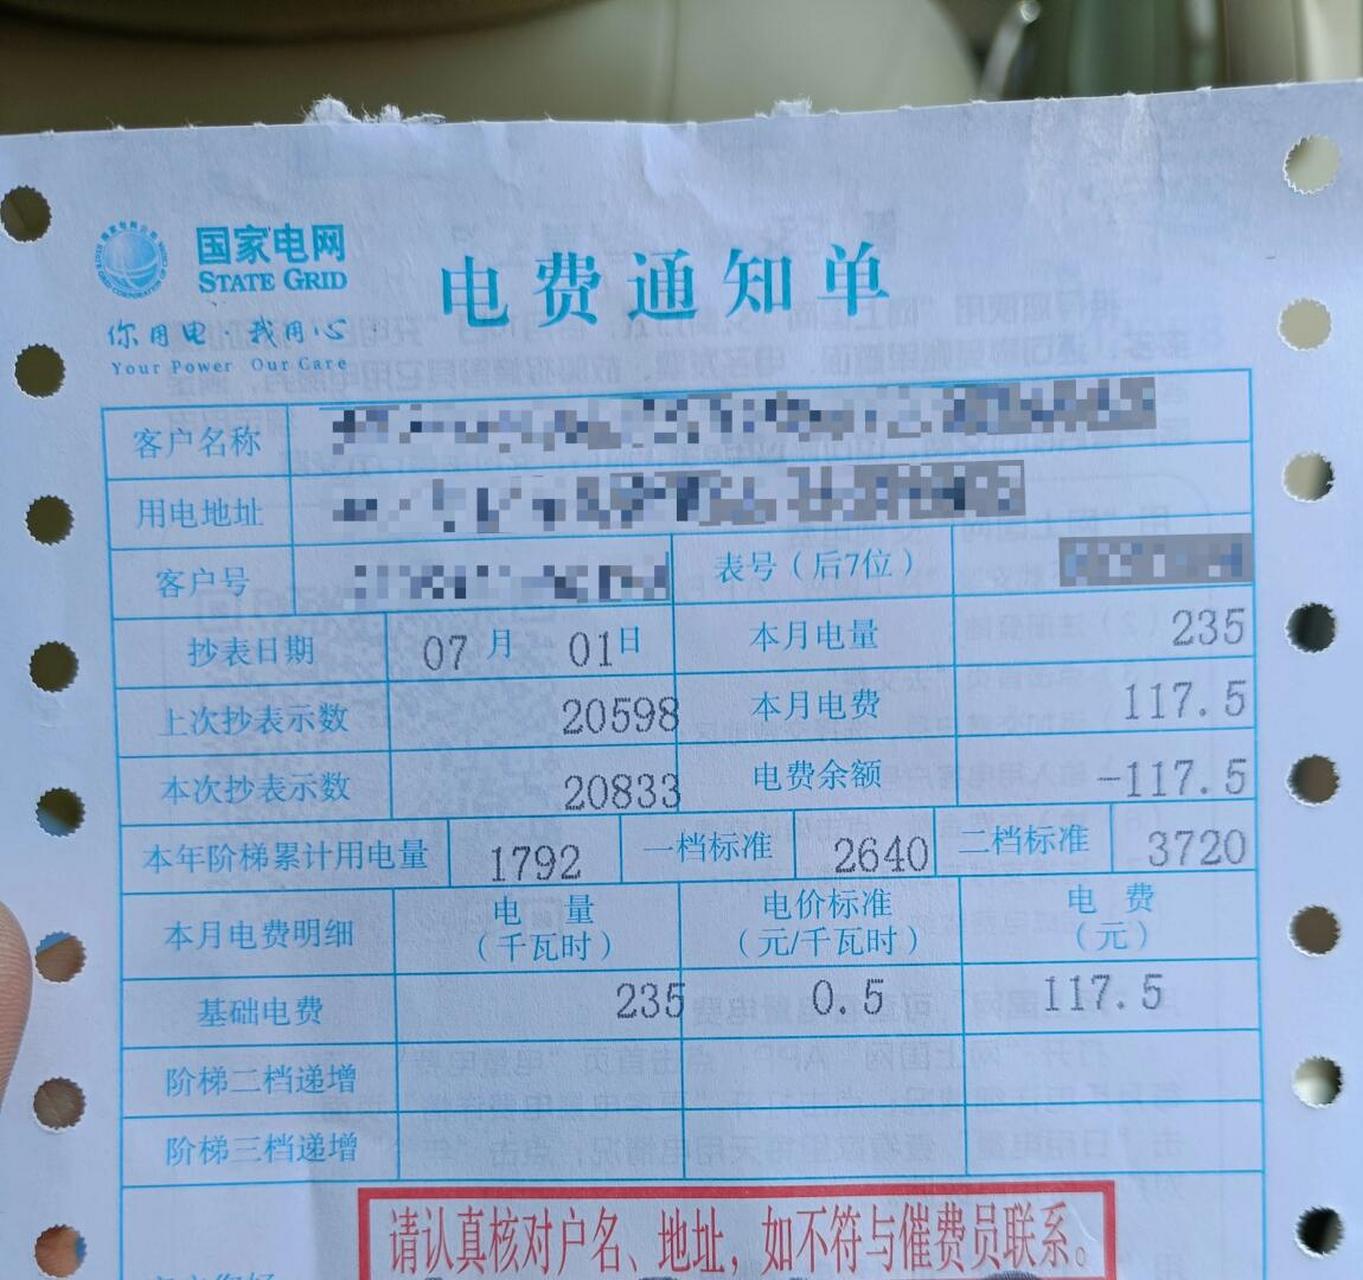 国家电网
STATE GRID
你用电·我用心
Your Power Our Care
电费通知单
客户名称
用电地址
客户号 表号（后7位）
抄表日期 07 月 01日 本月电量 235
上次抄表示数 20598 本月电费 117.5
本次抄表示数 20833 电费余额 -117.5
本年阶梯累计用电量 1792 一档标准 2640 二档标准 3720
本月电费明细 电量（千瓦时） 电价标准（元/千瓦时） 电费（元）
基础电费 235 0.5 117.5
阶梯二档递增
阶梯三档递增
请认真核对户名、地址，如不符与催费员联系。